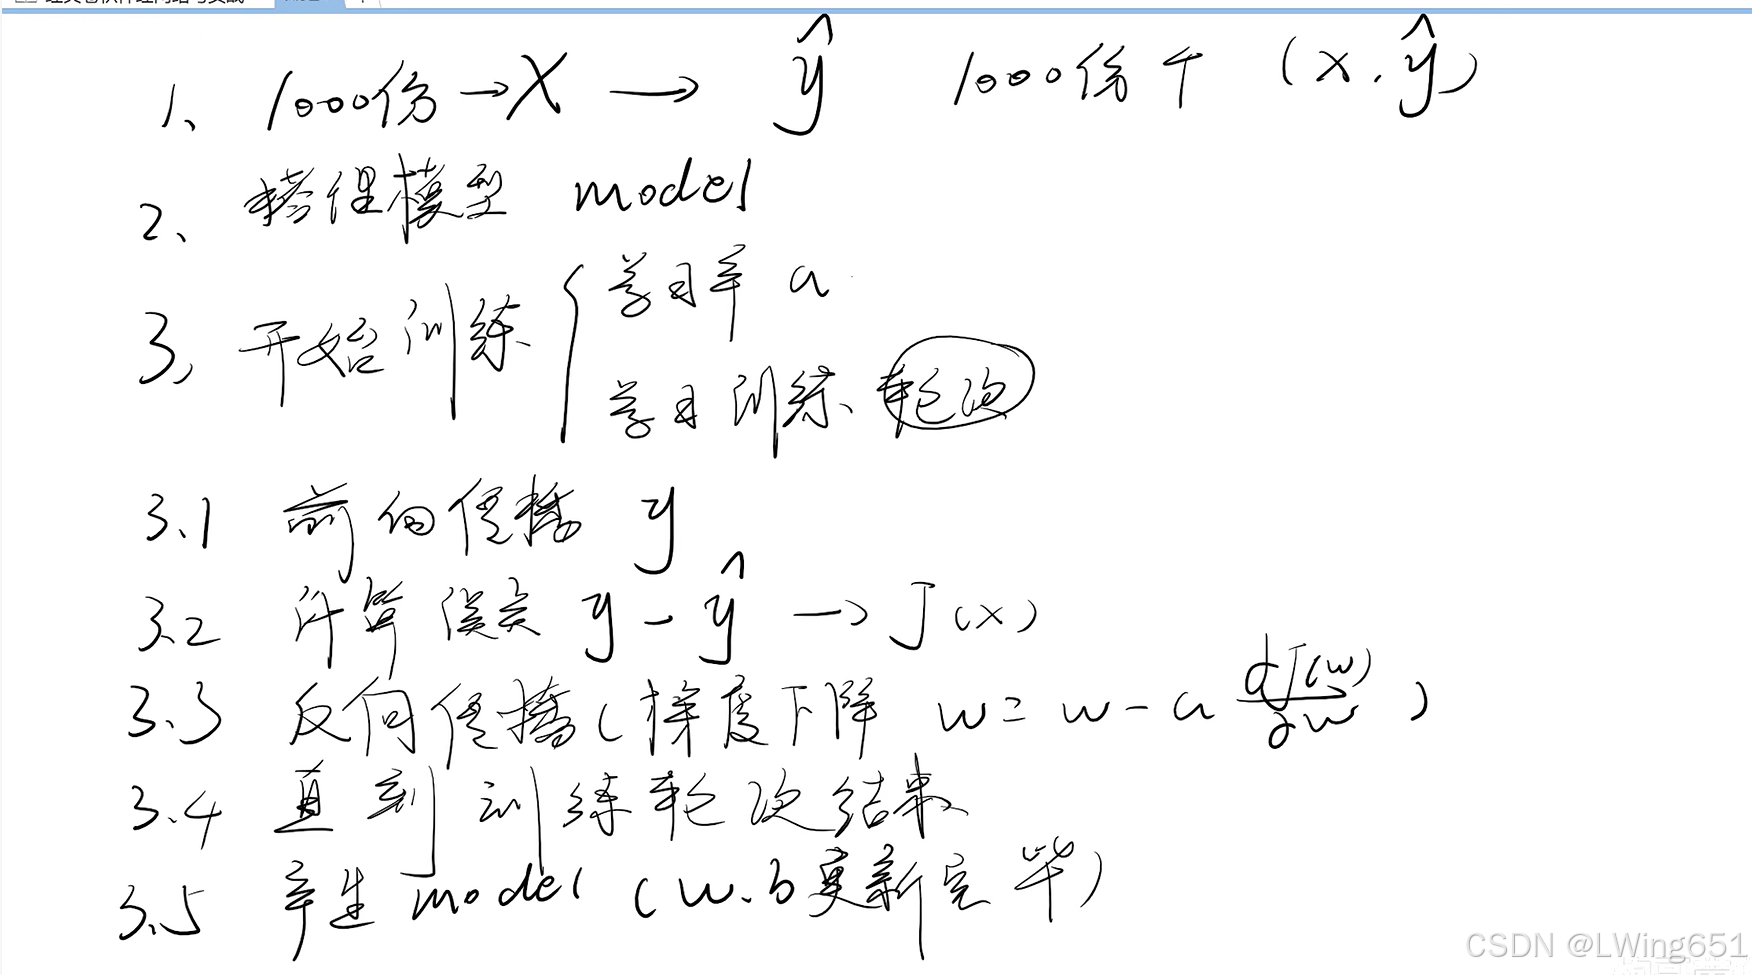 1、1000份→X → ŷ 1000份个 (x, ŷ)
2、搭建模型 model
3、开始训练 { 学习率 a
学习训练、轮次
3.1 前向传播 y
3.2 计算误差 y - ŷ → J(x)
3.3 反向传播 (梯度下降 w = w - a dJ(w)/∂w )
3.4 直到训练轮次结束
3.5 产生 model (w.b更新完毕)
CSDN @LWing651